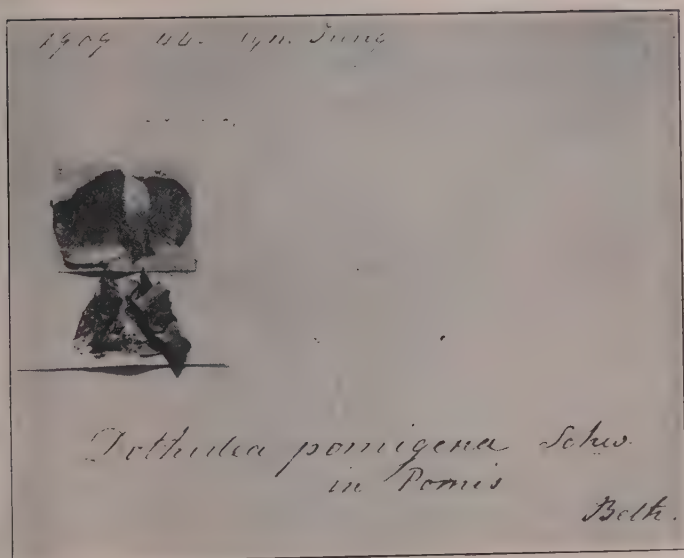 1909 syn. Fung
Dothidea pomigena Schw.
in Pomis
Beth.